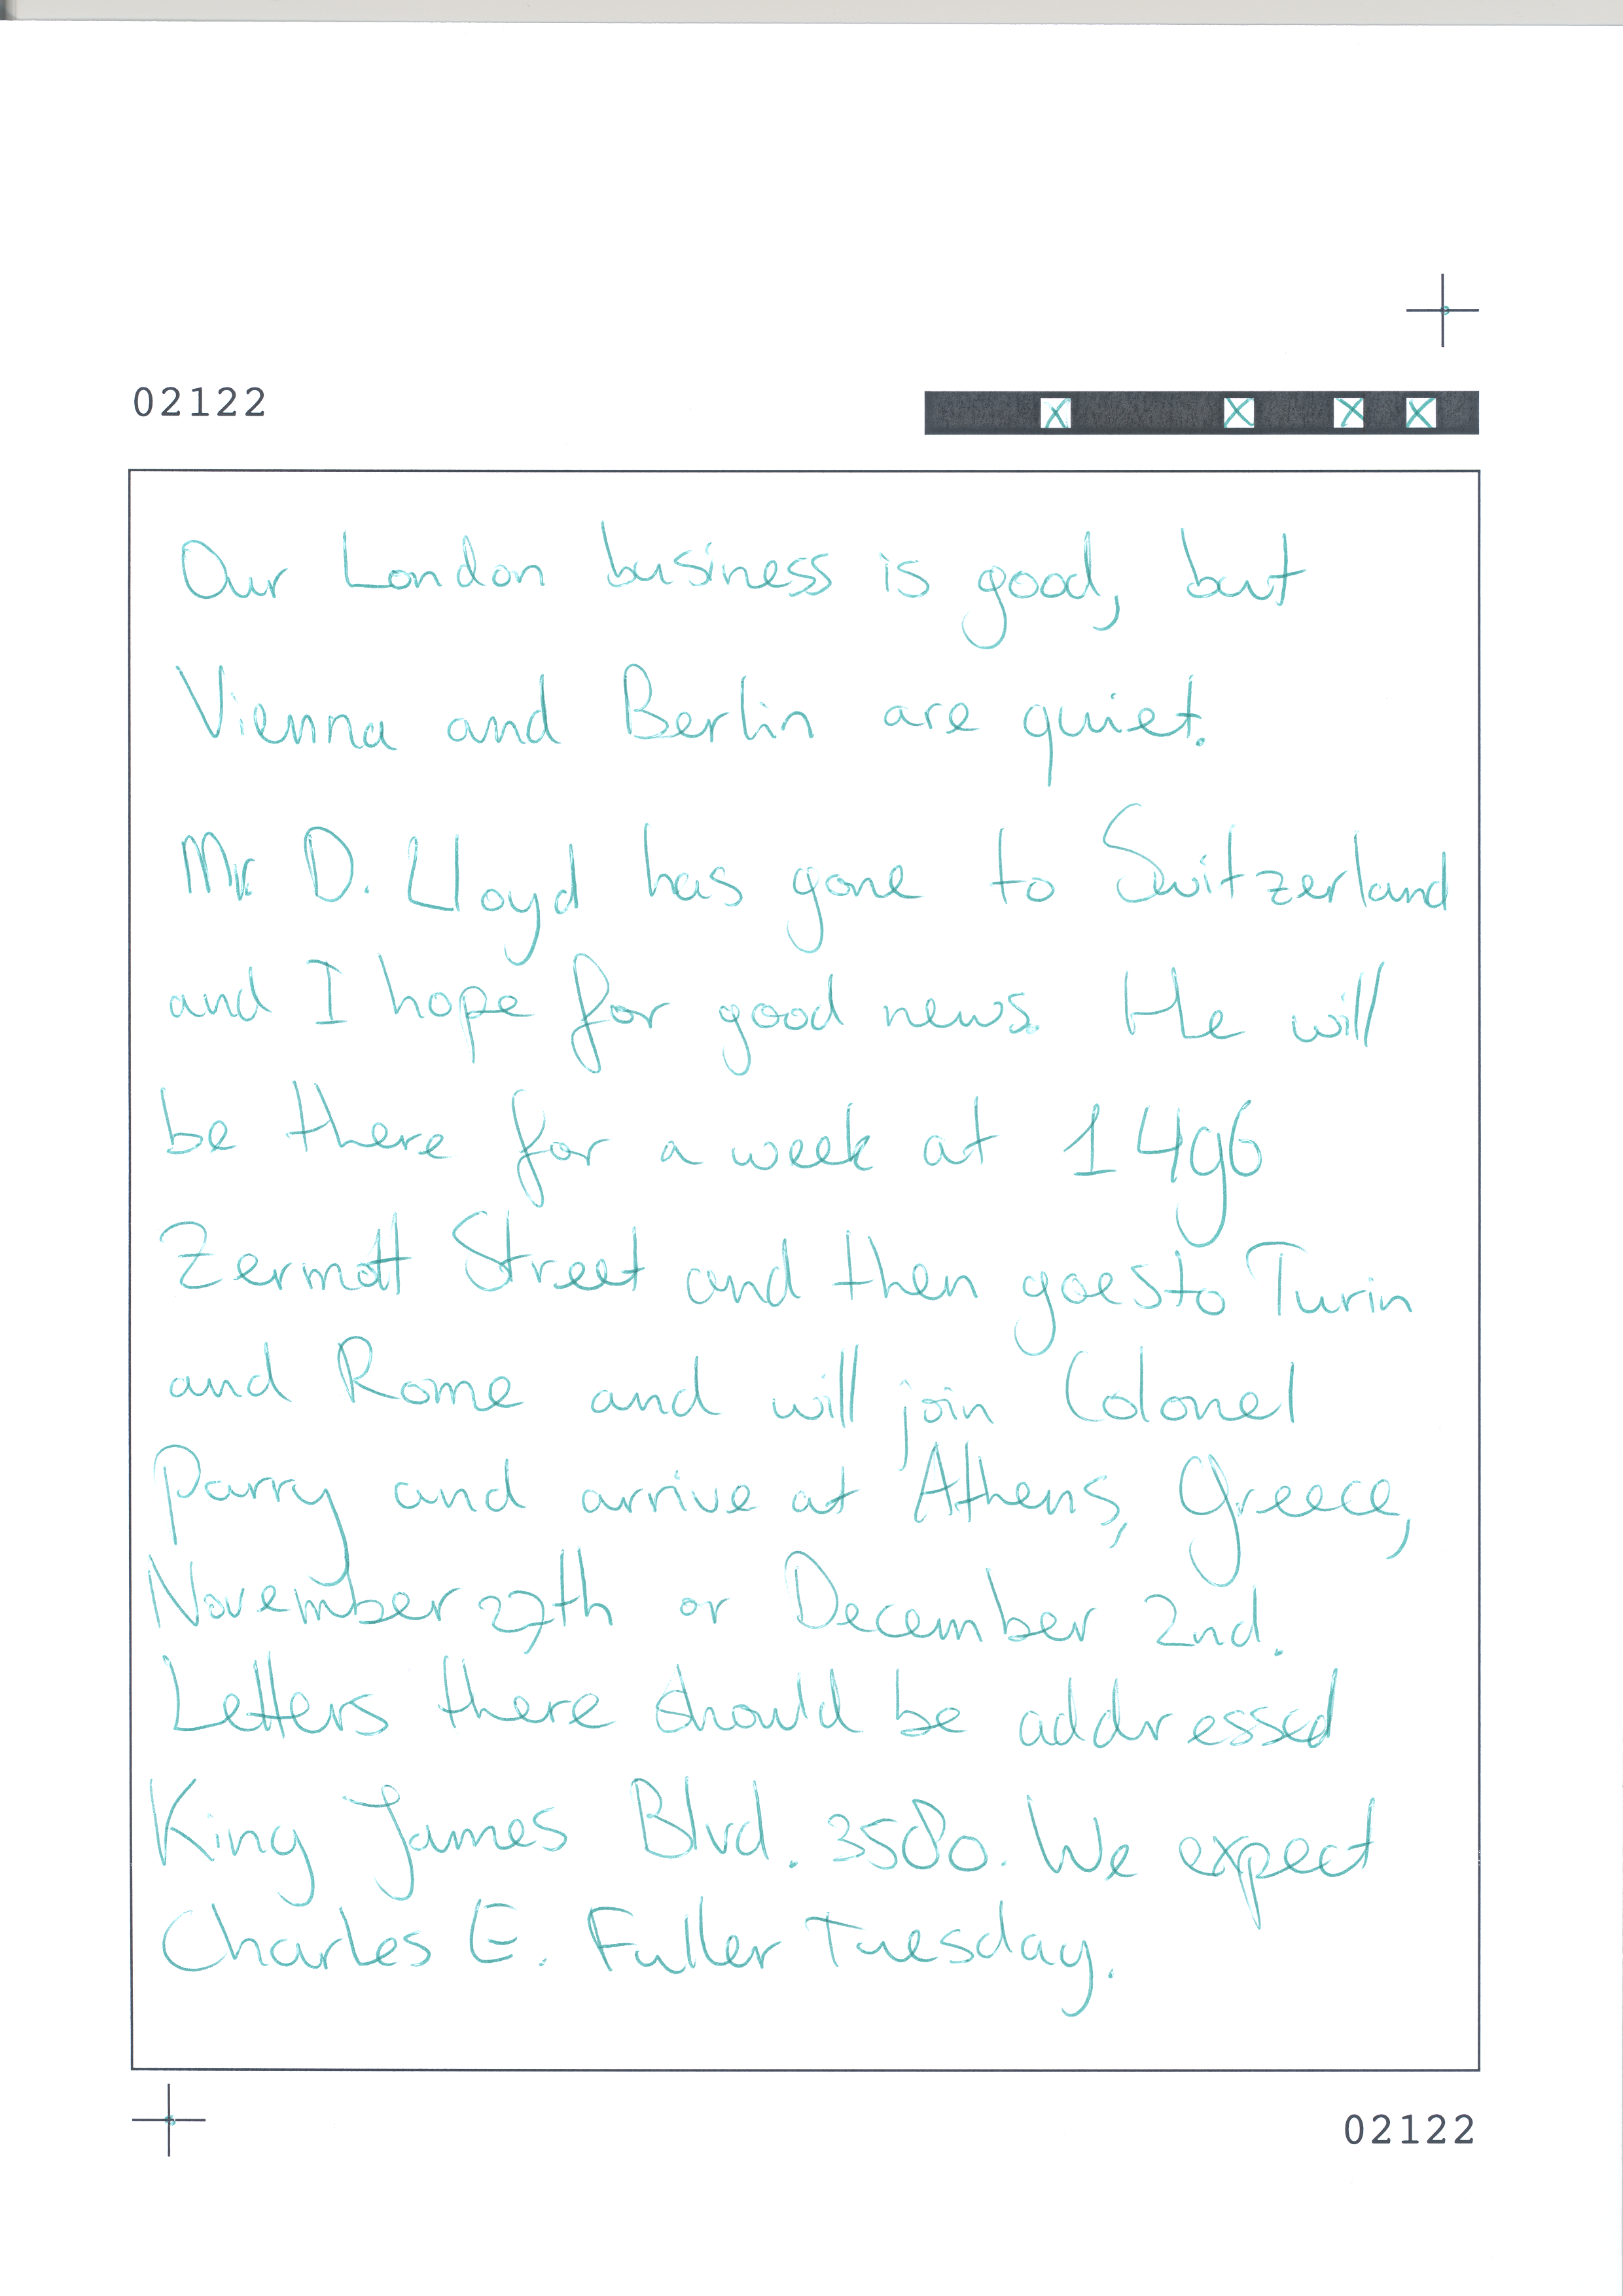 02122
Our London business is good, but
Vienna and Berlin are quiet.
Mr D. Lloyd has gone to Switzerland
and I hope for good news. He will
be there for a week at 1496
Zermott Street and then goes to Turin
and Rome and will join Colonel
Parry and arrive at Athens, Greece,
November 27th or December 2nd.
Letters there should be addressed
King James Blvd. 3580. We expect
Charles E. Fuller Tuesday.
02122